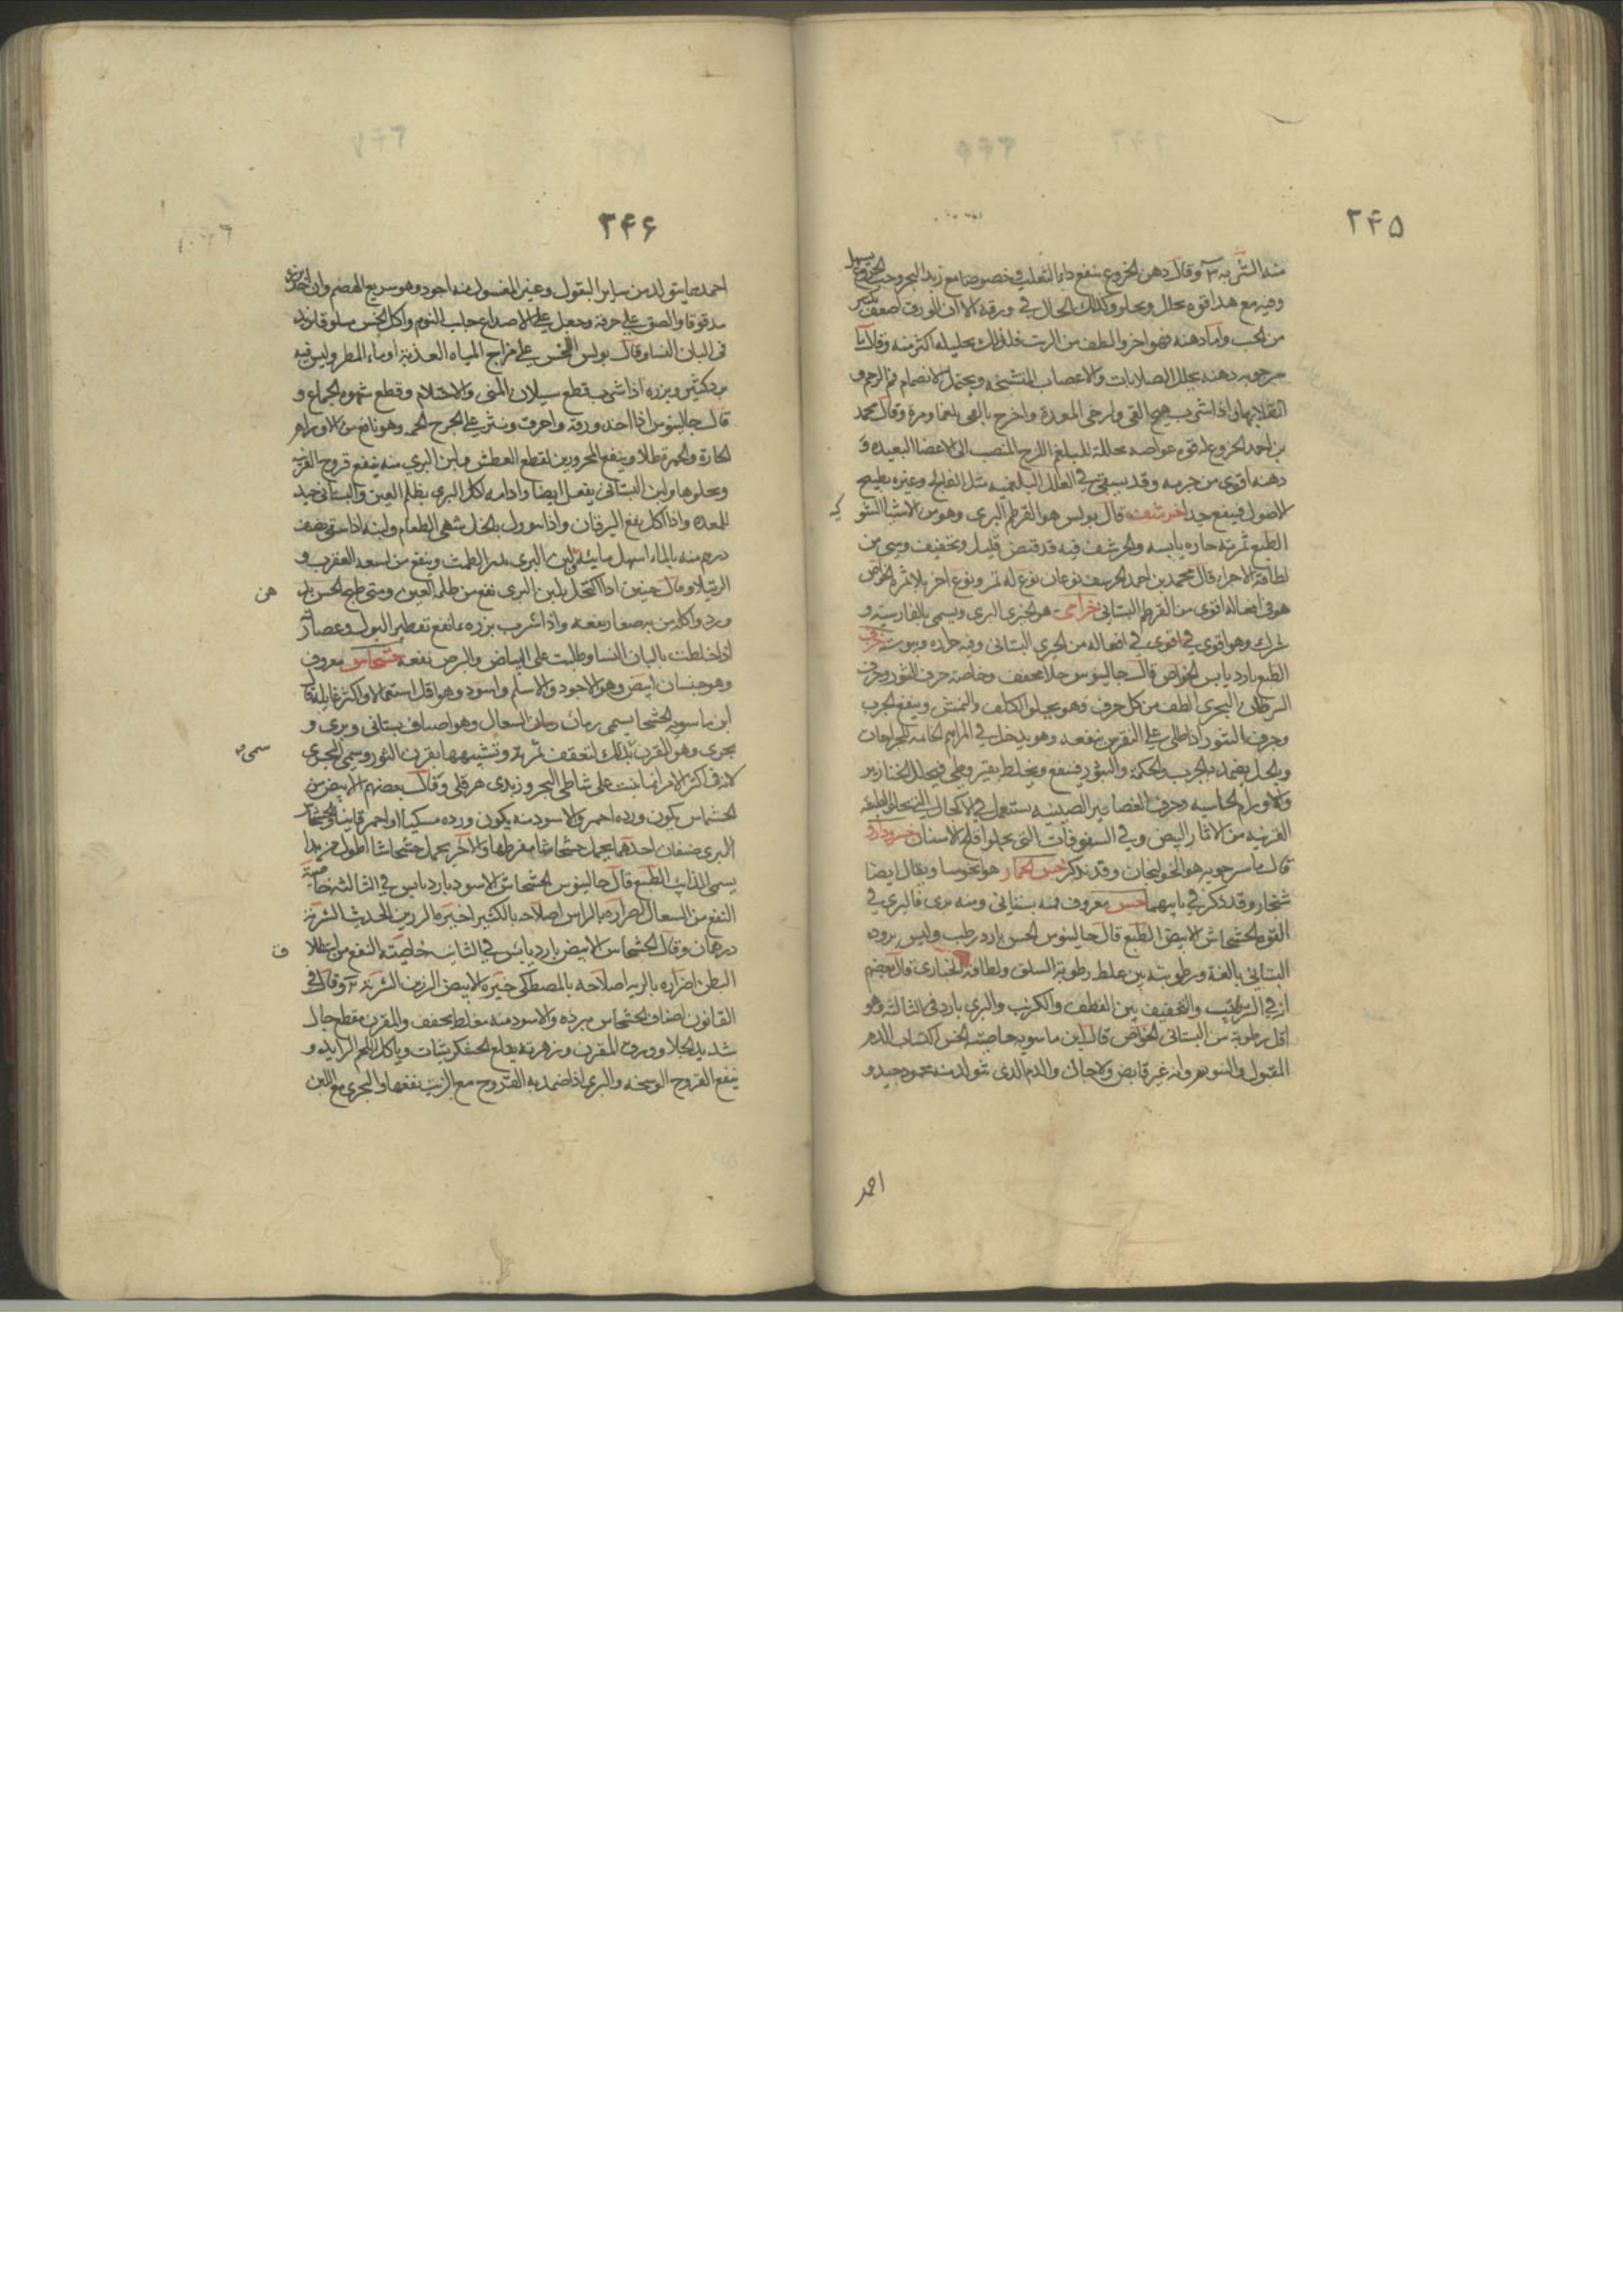 ۲۴۵
منه الشربة ٣ وقال دهن الخروع ينفع داء الثعلب وخصوصا مع زبد البحر وحب الخروع يسهل
وفيه مع هذا قوة يحلل ويجلو وكذلك الحال في ورقه الا ان الورق اضعف بكثير
من الحب واما دهنه فهو احر والطف من الزيت فلذلك تحليله اكثر منه وقال ما
سرجويه دهنه يحلل الصلابات والاعصاب المتشنجة ويحتمل لانضمام فم الرحم و
انقلابها واذا شرب هيج القي وارخى المعدة واخرج بالقي بلغما ومرة وقال محمد
بن احمد الخروع له قوة غواصة محللة للبلغم اللزج المنصب الى الاعضا البعيدة و
دهنه اقوى من جرمه وقد يسقى في العلل البلغمية مثل الفالج وغيره بطبيخ
الاصول فينفع جيدا خرشف قال بولس هو القرطم البري وهو من الاشيا الشو
كية
الطبع ثمرته حارة يابسة والخرشف فيه قد قبض قليل وتجفيف وشي من
لطافة الاجزا قال محمد بن احمد الخرشف نوعان نوع له ثمر ونوع اخر بلا ثمر الخواص
هو في افعاله اقوى من القرطم البستاني خزامى هو الخيري البري ويسمى بالفارسية و
وهو اقوى في افعاله من الخيري البستاني وفيه حرارة ويبوسة خزف
الطبع بارد يابس الخواص قال جالينوس جلا مجفف وخاصة خزف التنور وخزف
السرطان البحري الطف من كل خزف فهو يجلو الكلف والنمش وينفع الجرب
وخزف التنور اذا طلي على النقرس نفعه وهو يدخل في المراهم الخاتمة للجراحات
وبالخل يضمد به الجرب والحكة والبثور فينفع ويخلط بقيروطي فيحلل الخنازير
والاورام الجاسية وخزف الغضاير الصينية يستعمل في الاكحال التي تجلو الطبقة
القرنية من الاثار البيض وفي السفوفات التي تجلو قلح الاسنان خسرودارو
قال ماسرجويه هو الخولنجان وقد ذكر خس الحمار هو انخوسا ويقال ايضا
شنجار وقد ذكر في بابيهما خس معروف فمنه بستاني ومنه بري فالبري في
القوة الخشخاش الابيض الطبع قال جالينوس الخس بارد رطب وليس بروده
البستاني بالغة ورطوبته بين غلظ رطوبة السلق ولطافة الخبازى قال بعضهم
انه في الترطيب والتجفيف بين القطف والكرنب والبري بارد في الثالثة وهو
اقل رطوبة من البستاني الخواص قال ابن ماسويه خاصية الخس اكتساب الدم
المقبول والنوم وانه غير قابض ولا جال والدم الذي يتولد منه محمود جيد و
احمد
۲۴۶
احمد مما يتولد من ساير البقول وغير المغسول منه اجود وهو سريع الهضم وان اخذ بزره
مدقوقا والصق على خرقة وجعل على الاصداغ جلب النوم واكل الخس مسلوقا يزيد
في البان النسا وقال بولس الخس على مزاج المياه العذبة او ماء المطر وليس فيه
برد كثير وبزره اذا شرب قطع سيلان المني والاحتلام وقطع شهوة الجماع و
قال جالينوس اذا اخذ ورقه واحرق ونثر على الجرح الحمه وهو نافع من الاورام
الحارة والحمرة طلا وينفع المحرورين لقطع العطش ولبن البري منه ينفع قروح القرنية
ويجلوها ولبن البستاني يفعل ايضا وادامه اكل البري يظلم العين والبستاني جيد
للمعدة واذا اكل نفع اليرقان واذا تنوول بالخل شهى الطعام ولبنه اذا سقي نصف
درهم منه بالماء اسهل مائية ولبن البري يدر الطمث وينفع من لسعة العقرب و
الرتيلا وقال حنين اذا اكتحل بلبن البري نفع من ظلمة العين ومتى طبخ الخس بد
هن
ورد واكله من به صفار نفعه واذا شرب بزره نفع تقطير البول وعصارته
اذا خلطت بالبان النسا وطليت على البياض والبرص نفعه خشخاش معروف
وهو جنسان ابيض وهو الاجود والاسلم واسود وهو اقل استعمالا واكثر غايلة قال
ابن ماسويه الخشخاش يسمى رمان السعال وهو اصناف بستاني وبري و
بحري وهو المقرن بذلك لتعقف ثمرته وتشبيهها بقرن الثور وسمي البحري
سمى به
لانه في اكثر الامر انما ينبت على شاطي البحر وزبدي هرقلي وقال بعضهم الابيض من
الخشخاش يكون ورده احمر والاسود منه يكون ورده مسكيا او احمر قانيا والخشخاش
البري صنفان احدهما يحمل خشخاشا مفرطحا والاخر يحمل خشخاشا اطول
يسمى الطبع قال جالينوس الخشخاش الاسود بارد يابس في الثالثة خاصيته
النفع من السعال اضراره بالراس اصلاحه بالكثيرا خيره الرزين الحديث الشربة
درهمان وقال الخشخاش الابيض بارد يابس في الثانية خاصيته النفع من استطلا
ق
البطن اضراره بالرية اصلاحه بالمصطكى خيره الابيض الرزين الشربة ٢ وقال في
القانون اصناف الخشخاش مبردة والاسود منه مغلظ مجفف والمقرن مقطع جال
شديد الجلا وورق المقرن وزهرته يقلع الخشكريشات وياكل اللحم الزايد و
ينفع القروح الوسخة والبري اذا ضمد به القروح مع الزيت نفعها والبحري مع اللبن